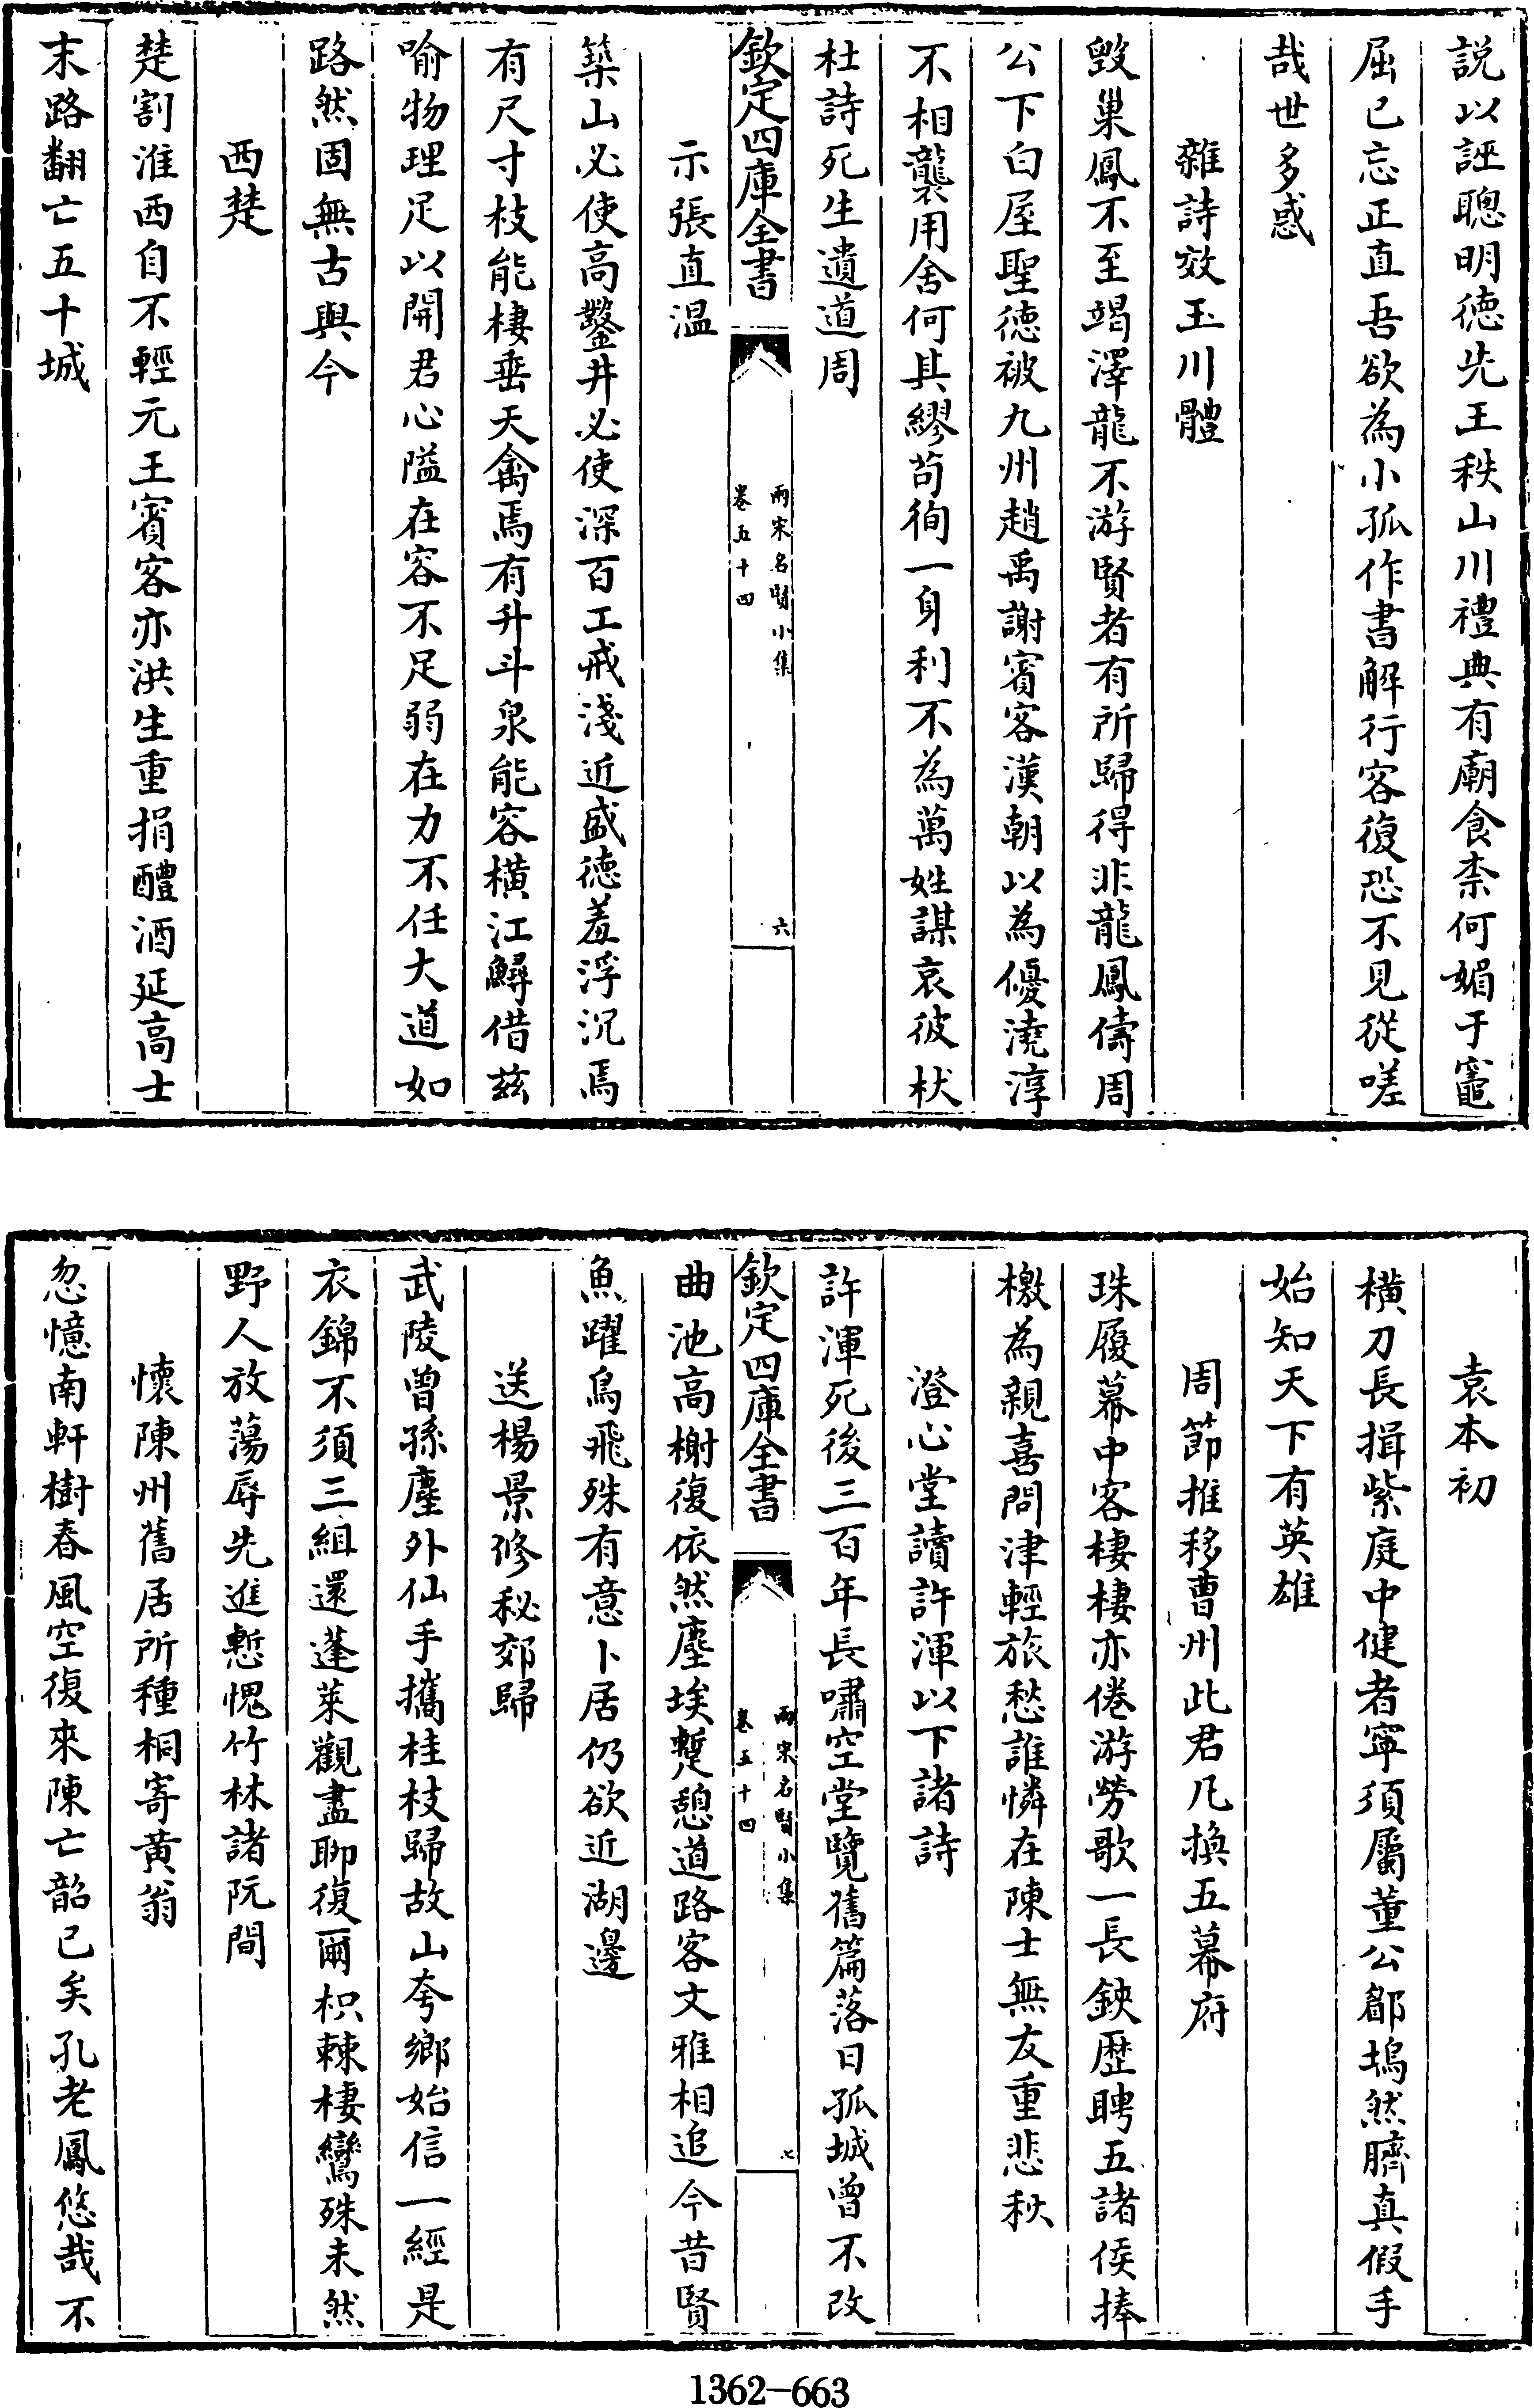 説以誣聰明徳先王秩山川禮典有廟食柰何媚于竈
屈已忘正直吾欲為小孤作書解行客復恐不見從嗟
哉世多惑
雜詩效玉川體
毀巢鳳不至竭澤龍不游賢者有所歸得非龍鳳儔周
公下白屋聖徳被九州趙禹謝賓客漢朝以為優澆淳
不相襲用舍何其繆苟徇一身利不為萬姓謀哀彼杕
杜詩死生遺道周
欽定四庫全書
兩宋名賢小集
卷五十四
六
示張直温
築山必使高鑿井必使深百工戒淺近盛徳羞浮沉焉
有尺寸枝能棲垂天禽焉有升斗泉能容橫江鱘借兹
喻物理足以開君心隘在容不足弱在力不任大道如
路然固無古與今
西楚
楚割淮西自不輕元王賓客亦洪生重捐醴酒延高士
末路翻亡五十城
袁本初
橫刀長揖紫庭中健者寧須屬董公郿塢然臍真假手
始知天下有英雄
周節推移曹州此君凡換五幕府
珠履幕中客棲棲亦倦游勞歌一長鋏歴聘五諸侯捧
檄為親喜問津輕旅愁誰憐在陳士無友重悲秋
澄心堂讀許渾以下諸詩
許渾死後三百年長嘯空堂覽舊篇落日孤城曾不改
欽定四庫全書
兩宋名賢小集
卷五十四
七
曲池高榭復依然塵埃蹔憩道路客文雅相追今昔賢
魚躍鳥飛殊有意卜居仍欲近湖邊
送楊景修秘郊歸
武陵曽孫塵外仙手攜桂枝歸故山夸鄉始信一經是
衣錦不須三組還蓬萊觀盡聊復爾枳棘棲鸞殊未然
野人放蕩辱先進慙愧竹林諸阮間
懷陳州舊居所種桐寄黄翁
忽憶南軒樹春風空復來陳亡韶已矣孔老鳳悠哉不
1362-663